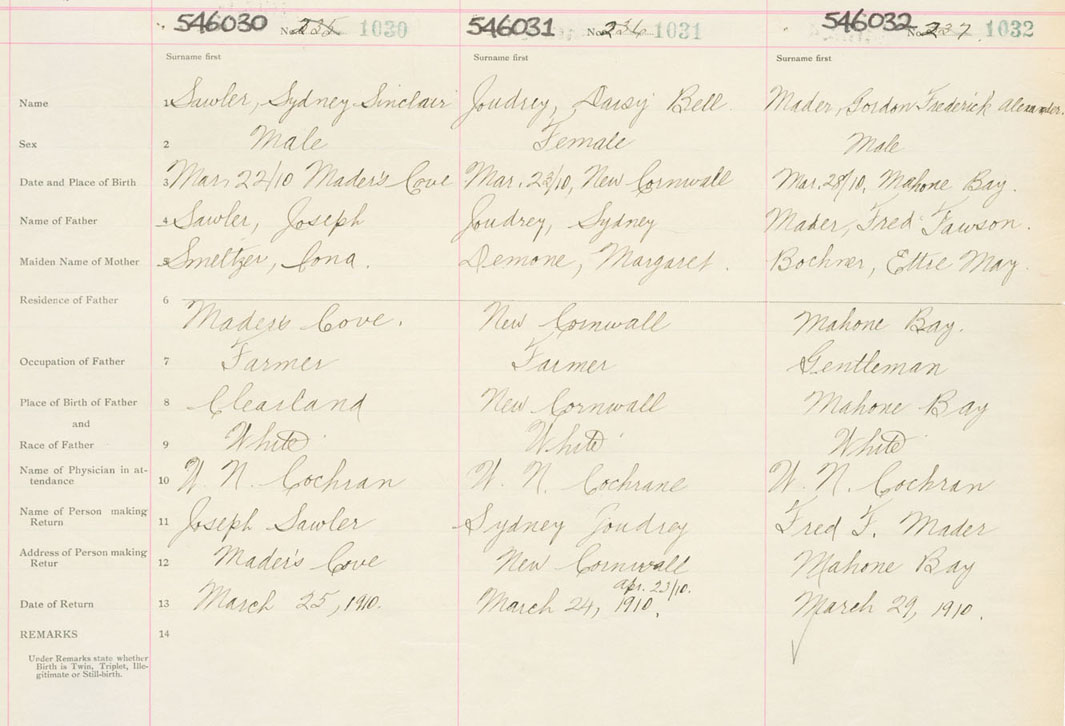 546030 No. 235 1030 546031 No. 236 1031 546032 No. 237 1032
Surname first Surname first Surname first
Name 1 Sawler, Sydney Sinclair Joudrey, Daisy Bell. Mader, Gordon Frederick Alexander.
Sex 2 Male Female Male
Date and Place of Birth 3 Mar. 22/10 Mader's Cove Mar. 23/10, New Cornwall Mar. 28/10, Mahone Bay.
Name of Father 4 Sawler, Joseph Joudrey, Sydney Mader, Fred Fawson.
Maiden Name of Mother 5 Smeltzer, Cona. Demone, Margaret. Bochner, Ettie May.
Residence of Father 6
Mader's Cove. New Cornwall Mahone Bay.
Occupation of Father 7 Farmer Farmer Gentleman
Place of Birth of Father 8 Clearland New Cornwall Mahone Bay
and
Race of Father 9 White White White
Name of Physician in at-
tendance 10 W. N. Cochran W. N. Cochrane W. N. Cochran
Name of Person making
Return 11 Joseph Sawler Sydney Joudrey Fred F. Mader
Address of Person making
Retur 12 Mader's Cove New Cornwall Mahone Bay
Apr. 23/10.
Date of Return 13 March 25, 1910. March 24, 1910. March 29, 1910.
REMARKS 14
Under Remarks state whether
Birth is Twin, Triplet, Ille-
gitimate or Still-birth.